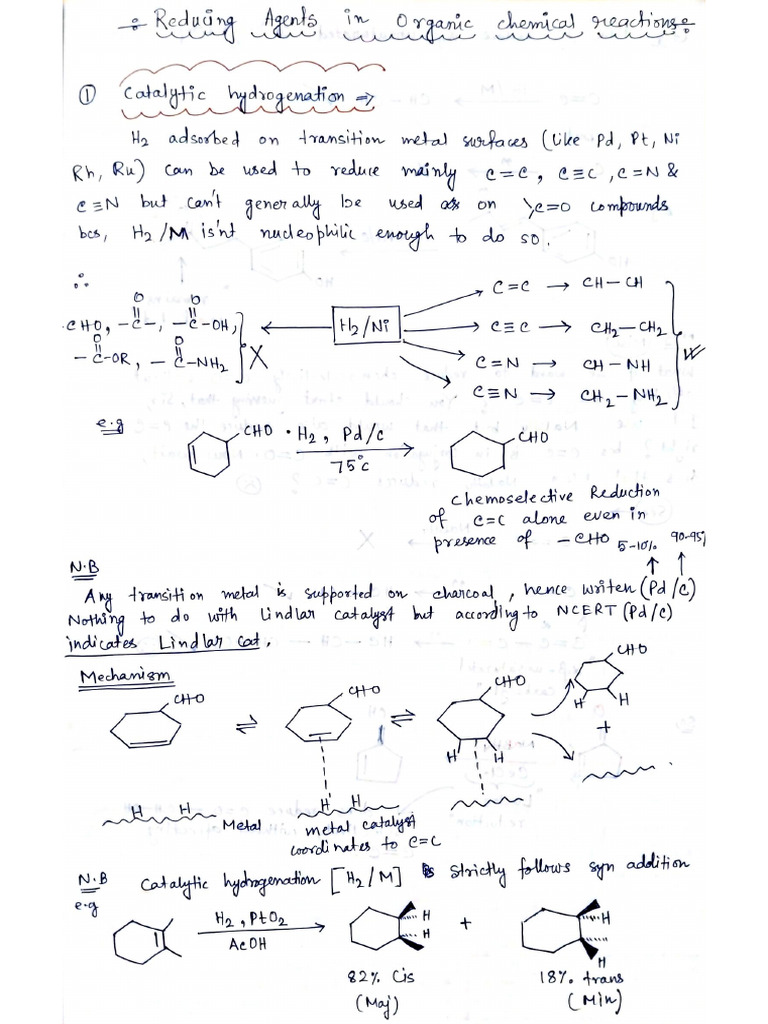 ÷ Reducing Agents in Organic chemical reactions ÷
① Catalytic hydrogenation ⇒
H2 adsorbed on transition metal surfaces (Like Pd, Pt, Ni
Rh, Ru) can be used to reduce mainly C=C, C≡C, C=N &
C≡N but can't generally be used on >C=O compounds
bcs, H2/M is'nt nucleophilic enough to do so.
∴
C=C → CH-CH
-CHO, -C-, -C-OH,
O O
H2/Ni
C≡C → CH2-CH2
-C-OR, -C-NH2
O O
X
C=N → CH-NH
C≡N → CH2-NH2
e.g
CHO · H2, Pd/c
75°c
CHO
Chemoselective Reduction
of C=C alone even in
presence of -CHO
5-10% 90-95%
N.B
Any transition metal is supported on charcoal, hence writen (Pd/c)
Nothing to do with Lindlar catalyst but according to NCERT (Pd/c)
indicates Lindlar Cat.
Mechanism
CHO
CHO
CHO
CHO
H H
H H
+
H H
Metal
H H
metal catalyst
coordinates to C=C
N.B
Catalytic hydrogenation [H2/M] strictly follows syn addition
e.g
H2, PtO2
AcOH
H
H
+
H
H
82% Cis
(Maj)
18% trans
(Min)